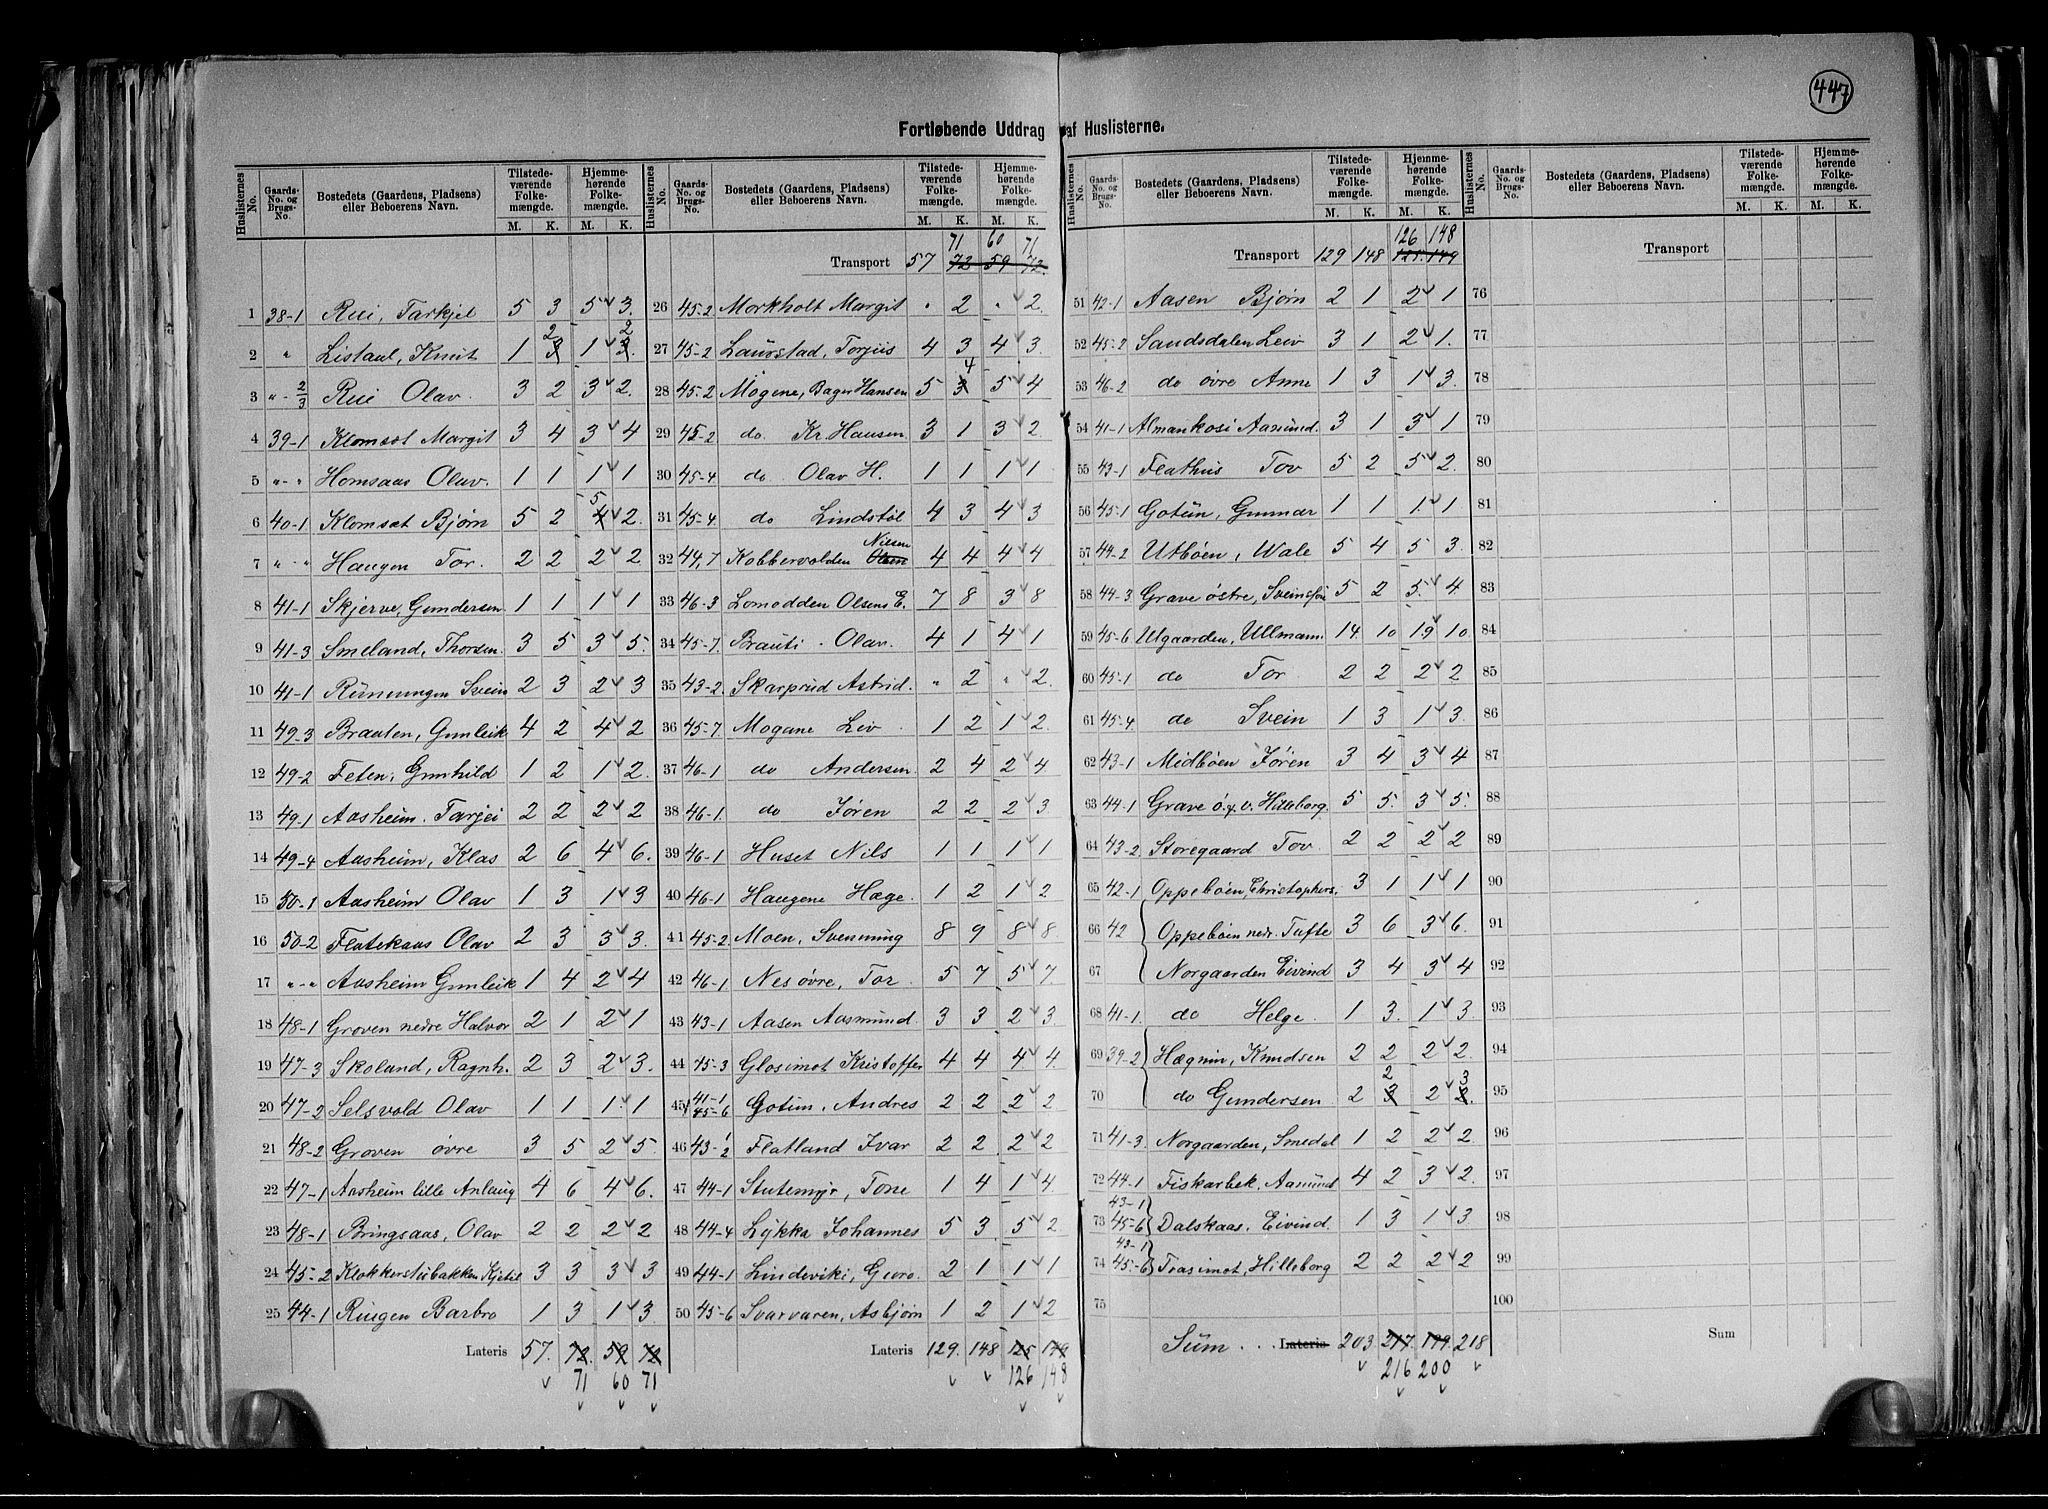 447
Fortløbende Uddrag af Huslisterne.
Huslisternes No. Gaards-No. og Brugs-No. Bostedets (Gaardens, Pladsens) eller Beboerens Navn. Tilstedeværende Folkemængde. M. K. Hjemmehørende Folkemængde. M. K.
1 38-1 Rui, Tarkjel 5 3 5 3.
2 " Listaul, Knut 1 3 2 1 3 2
3 "- 2/3 Rui Olav 3 2 3 2.
4 39-1 Klomset Margit 3 4 3 4
5 "-" Homsaas Olav. 1 1 1 1
6 40-1 Klomset Bjørn 5 2 4 5 2.
7 "-" Haugen Tor. 2 2 2 2
8 41-1 Skjerve, Gundersen 1 1 1 1
9 41-3 Smeland, Thorsen 3 5 3 5.
10 41-1 Rünningen Svein 2 3 2 3
11 49-3 Braaten, Gunleik 4 2 4 2
12 49-2 Feten, Gunhild 1 2 1 2.
13 49-1 Aasheim. Tarjei 2 2 2 2
14 49-4 Aasheim, Klas 2 6 4 6.
15 50-1 Aasheim Olav 1 3 1 3
16 50-2 Flatekaas Olav 2 3 3 3.
17 "-" Aasheim Gunleik 1 4 2 4
18 48-1 Groven nedre Halvor 2 1 2 1
19 47-3 Skoland, Ragnh. 2 3 2 3.
20 47-2 Selsvold Olav 1 1 1 1
21 48-2 Groven øvre 3 5 2 5.
22 47-1 Aasheim lille Anlaug 4 6 4 6.
23 48-1 Bringsaas, Olav 2 2 2 2
24 45-2 Klokkerstubakken Kjetil 3 3 3 3
25 44-1 Ringen Barbro 1 3 1 3
Lateris 57. 72. 59 72
71 60 71
Huslisternes No. Gaards-No. og Brugs-No. Bostedets (Gaardens, Pladsens) eller Beboerens Navn. Tilstedeværende Folkemængde. M. K. Hjemmehørende Folkemængde. M. K.
71 60 71
Transport 57 72 59 72.
26 45-2 Morkholt Margit " 2 " 2.
27 45-2 Laurstad, Torjus 4 3 4 3.
28 45-2 Mogene, Bager Hansen 5 3 4 5 4
29 45-2 do Kr. Hansen 3 1 3 2
30 45-4 do Olav H. 1 1 1 1
31 45-4 do Lindstøl 4 3 4 3
32 44,7 Kobbervolden Olsen Nilsen 4 4 4 4
33 46-3 Lomodden Olsens E. 7 8 3 8
34 45-7. Brauti - Olav. 4 1 4 1
35 43-2. Skarprud Astrid. " 2 " 2.
36 45-7 Mogane Liv 1 2 1 2
37 46-1 do Andersen. 2 4 2 4
38 46-1. do Jøren 2 2 2 3
39 46-1 Huset Nils 1 1 1 1
40 46-1 Haugene Hæge. 1 2 1 2
41 45-2 Moen, Svenning 8 9 8 8
42 46-1 Nes øvre, Tor 5 7 5 7.
43 43-1 Aasen Aasmund 3 3 2 3
44 45-3 Glosimot Kristoffer 4 4 4 4.
45 41-1 45-6 Gotun, Andres 2 2 2 2
46 43- 1/2 Flatland Ivar 2 2 2 2
47 44-1 Stutemyr, Tone 1 4 1 4
48 44-4 Lykka Johannes 5 3 5 2.
49 44-1 Lindeviki, Guro 2 1 1 1
50 45-6 Svarvaren, Asbjørn 1 2 1 2
Lateris 129. 148 125 149
126 148
Huslisternes No. Gaards-No. og Brugs-No. Bostedets (Gaardens, Pladsens) eller Beboerens Navn. Tilstedeværende Folkemængde. M. K. Hjemmehørende Folkemængde. M. K.
126 148
Transport 129 148 125. 149
51 42-1 Aasen Bjørn 2 1 2 1
52 45-2 Sandsdalen Leiv 3 1 2 1.
53 46-2 do øvre Anne 1 3 1 3.
54 41-1 Almankosi Aasmund. 3 1 3 1
55 43-1 Flathus Tov 5 2 5 2.
56 45-1 Gotün, Gunnar 1 1 1 1
57 44-2 Utbøen, Wale 5 4 5 3.
58 44-3 Grave østre, 5 2 5. 4
59 45-6 Utgaarden, Ullmann 14. 10 19 10.
60 45-1 do Tor 2 2 2 2
61 45-4 do Svein 1 3 1 3.
62 43-1 Midbøen Jøren 3 4 3 4
63 44-1 Grave ø. g. v. Hilleborg. 5 5. 3 5.
64 43-2. Storegaard Tov 2 2 2 2
65 42-1 Oppebøen, Christophers. 3 1 1 1
66 42 Oppebøen nedr. Tufte 3 6 3 6.
67 Norgaarden Eivind 3 4 3 4
68 41-1. do Helge 1 3. 1 3.
69 39-2 Hægnin, Knudsen 2 2 2 2.
70 do Gundersen 2 3 2 2 2. 3
71 41-3. Norgaarden, Smedal 1 2 2 2.
72 44-1 Fiskarbek, Aasmund 4 2 3 2.
73 43-1 45-6 Dalskaas, Eivind. 1 3 1 3.
74 43-1 45-6 Trasimot, Hilleborg 2 2 2 2
75
Süm . . . Lateris 203 217. 199. 218
216 200
Huslisternes No. Gaards-No. og Brugs-No. Bostedets (Gaardens, Pladsens) eller Beboerens Navn. Tilstedeværende Folkemængde. M. K. Hjemmehørende Folkemængde. M. K.
Transport
76
77
78
79
80
81
82
83
84
85
86
87
88
89
90
91
92
93
94
95
96
97
98
99
100
Sum